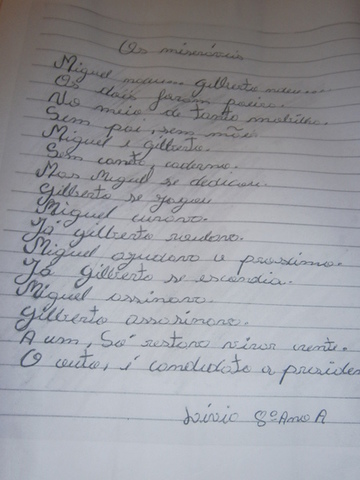 Os miseráveis
Miguel nasceu... Gilberto nasceu...
Os dois foram pouco.
No meio de tanto molhilho.
Sem pai, sem mãe.
Miguel e gilberto.
Sem canto, caderno.
Mas Miguel se dedicou.
Gilberto se jogou
Miguel curava.
Já gilberto roubava.
Miguel ajudava o proximo.
Já gilberto se escondia.
Miguel assinava.
Gilberto assasinava.
A um, só restava virar crente.
O outro, é candidato a presiden
Lívia 8º Ano A